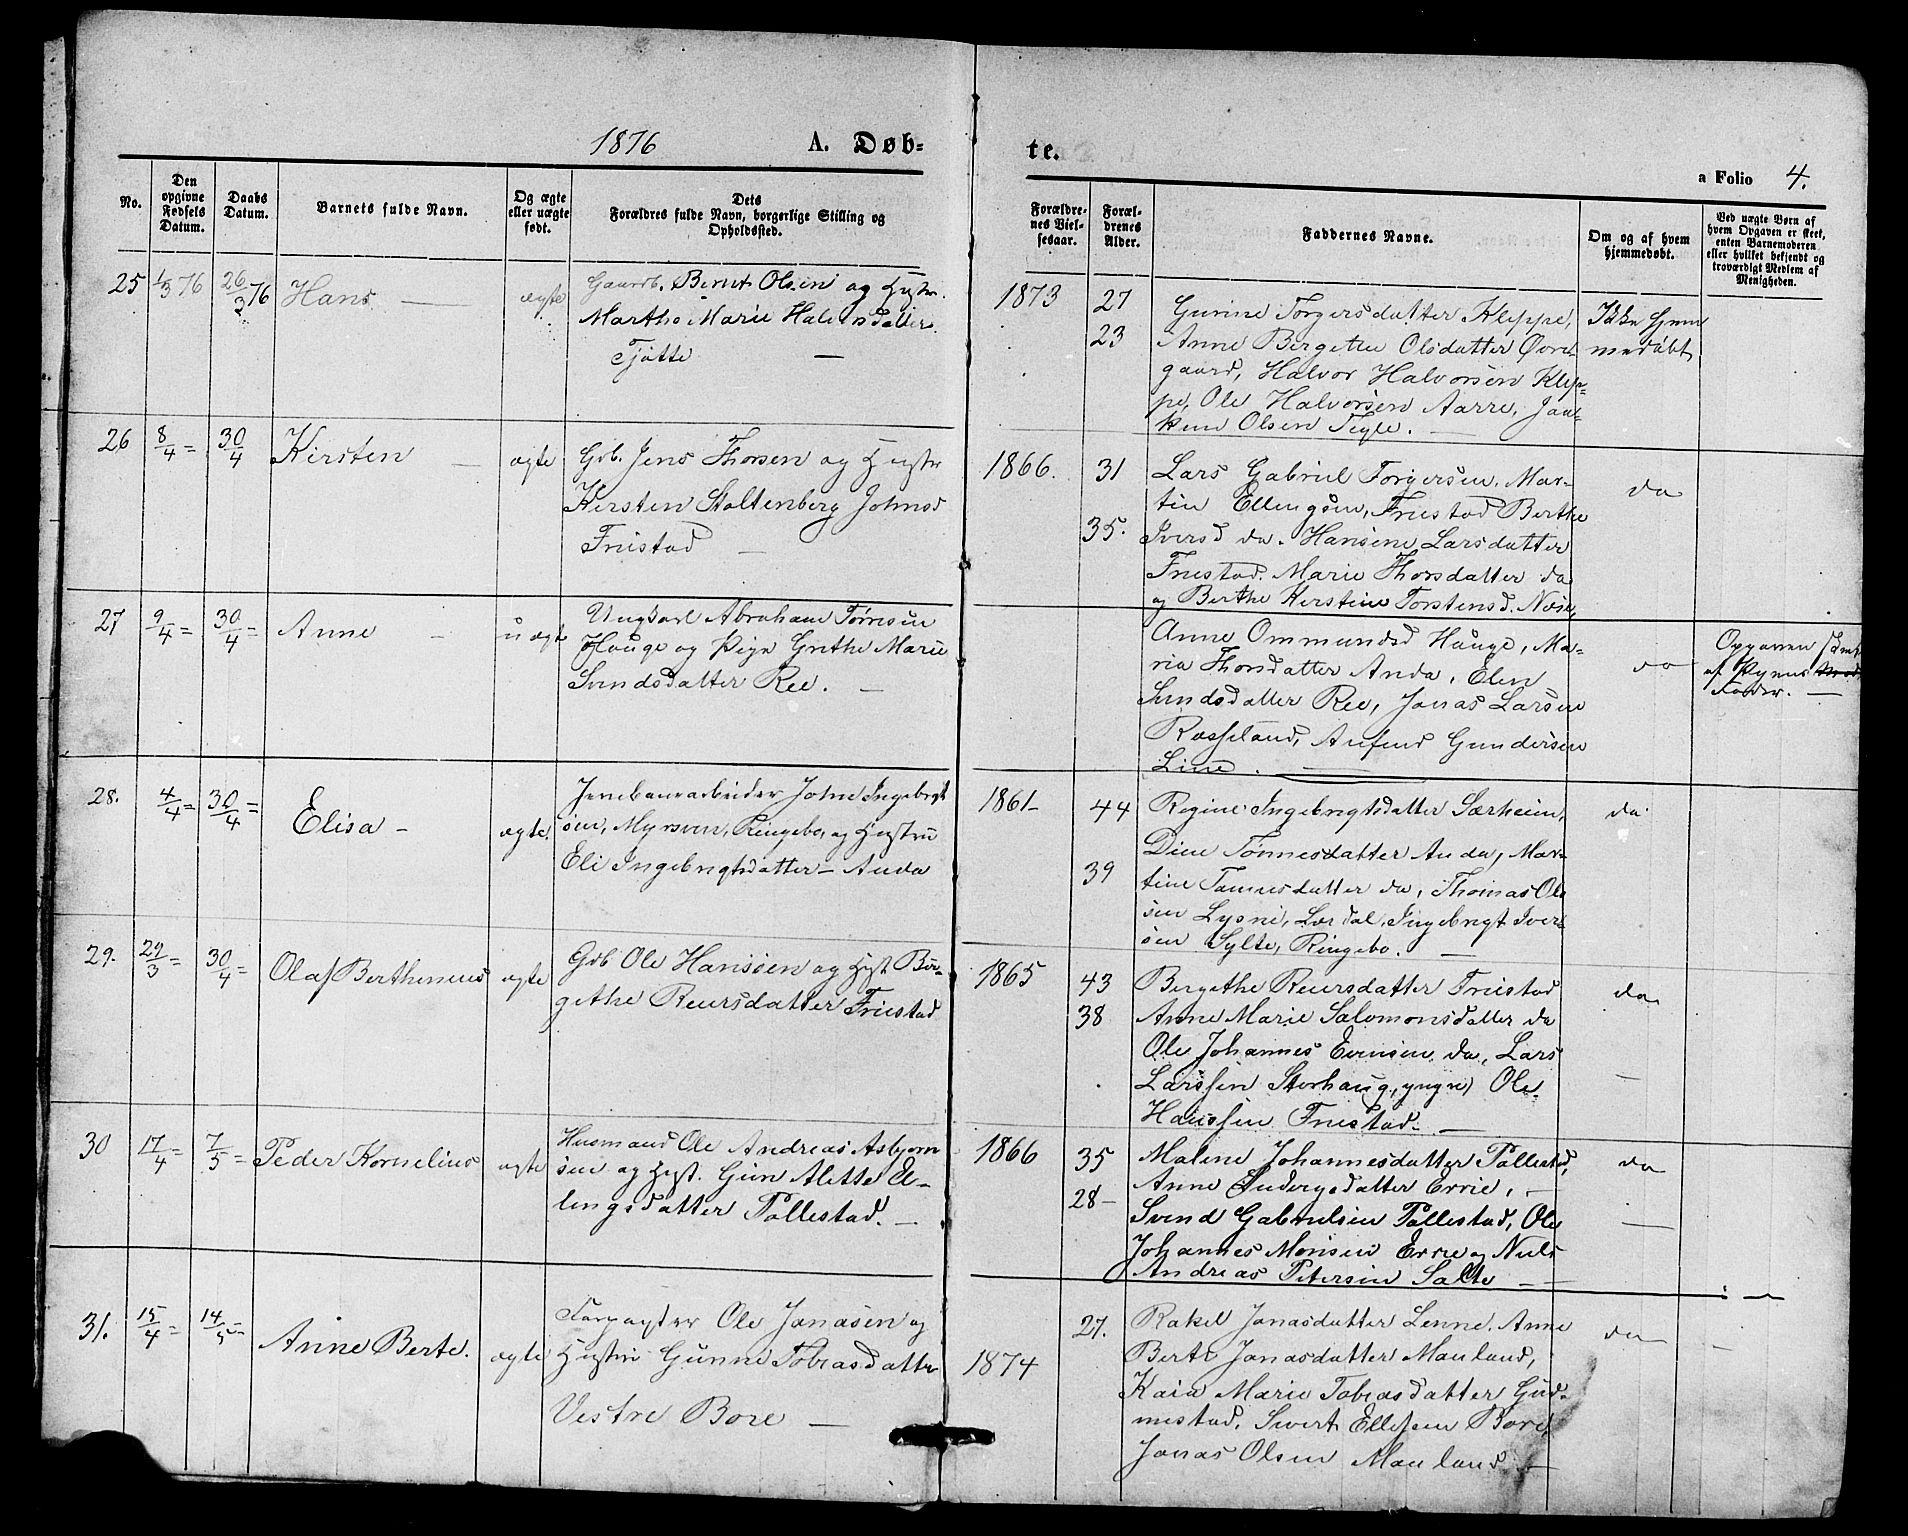 1876 A. Døb-
te.
a Folio 4.
No.
Den
opgivne
Fødsels
Datum.
Daabs
Datum.
Barnets fulde Navn.
Og ægte
eller uægte
født.
Dets
Forældres fulde Navn, borgerlige Stilling og
Opholdssted.
Forældre-
nes Viel-
sesaar.
Foræl-
drenes
Alder.
Faddernes Navne.
Om og af hvem
hjemmedøbt.
Ved uægte Børn af
hvem Opgaven er skeet,
enten Barnemoderen
eller hvilket bekjendt og
troværdigt Medlem af
Menigheden.
25 1/3 76 26/3 76 Hans — ægte
Gaardb. Bernt Olsen og Hustr.
Marthe Marie Halvorsdatter
Tjøtte —
1873 27
23
Gurine Torgersdatter Kleppe,
Anne Bergette Olsdatter Øvre-
gaard, Halvor Halvorsen Klep-
pe, Ole Halvorsen Aarre, Joa-
kim Olsen Tegle. —
Ikke hjem
medøbt
26 8/4 = 30/4 Kirsten — ægte
Grb. Jens Thorsen og Hustr
Kirsten Stoltenberg Johnsd
Friestad —
1866. 31
35.
Lars Gabriel Torgersen, Mar-
tin Ellingsen, Friestad Berthe
Iversd do. Hansine Larsdatter
Friestad. Marie Thorsdatter do
og Berthe Kirstine Torstensd. Næse,
do
27 9/4 = 30/4 = Anne — uægte
Ungkarl Abraham Tørresen
Hauge og Pige Grethe Marie
Svendsdatter Ree. —
Anne Ommundsd Hauge, Ma-
ria Thorsdatter Anda, Elen
Svendsdatter Ree, Jonas Larsen
Rosseland, Aufind Gundersen
Line. —
do
Opgaven skeet
af Pigens
Fader. —
28. 4/4 = 30/4 = Elisa — ægte.
Jernbanearbeider John Ingebrigt
sen, Myrsven, Ringebo, og Hustru
Eli Ingebrigtsdatter — Anda
1861- 44
39
Regine Ingebrigtsdatter Særheim,
Dine Tønnesdatter Anda, Mar-
tine Tønnesdatter do, Thomas Ole
sen Lysne, Lærdal, Ingebrigt Iver
sen Sylte, Ringebo. —
do
29. 29/3 = 30/4 = Olaf Berthinius ægte
Grb Ole Hansen og Hust Ber-
gethe Reiersdatter Friestad
1865 43
38
Bergethe Reiersdatter Friestad
Anne Marie Salomonsdatter do
Ole Johannes Evensen do, Lars
Larssen Storhaug, yngre, Ole
Hanssen Friestad. —
do
30 17/4 = 7/5 = Peder Kornelius ægte
Husmand Ole Andreas Asbjørn
sen og Hust. Gun Alette El-
lingsdatter Pollestad. —
1866 35
28-
Maline Johannesdatter Pollestad,
Anne datter Erris, —
Svend Gabrielsen Pollestad, Ole
Johannes Monsen Erris og Niels
Andreas Petersen Salte —
do
31. 15/4 = 14/5 = Anne Berte. ægte
Forpagter Ole Jonasen og
Hustru Gunne Tobiasdatter
Vestre Bore —
1874
27.
Rakel Jonasdatter Lenne, Anne
Berte Jonasdatter Mauland,
Kaia Marie Tobiasdatter Gud-
mestad, Sivert Ellefsen Bore,
Jonas Olsen Mauland —
do